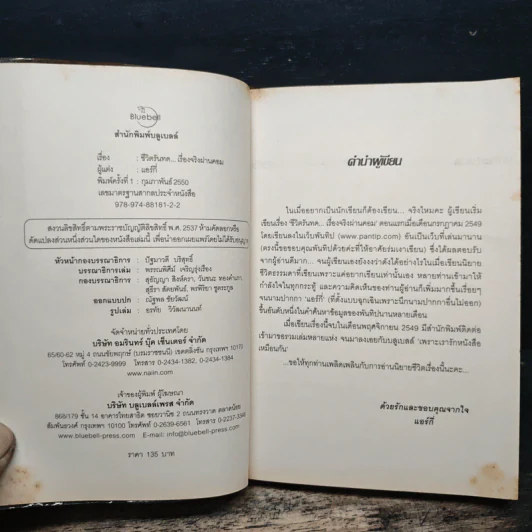 Bluebell
สำนักพิมพ์บลูเบลล์
เรื่อง : ชีวิตรันทด... เรื่องจริงผ่านคอม
ผู้แต่ง : แอร์กี่
พิมพ์ครั้งที่ 1 : กุมภาพันธ์ 2550
เลขมาตรฐานสากลประจำหนังสือ
978-974-88181-2-2
สงวนลิขสิทธิ์ตามพระราชบัญญัติลิขสิทธิ์ พ.ศ. 2537 ห้ามคัดลอกหรือ
ดัดแปลงส่วนหนึ่งส่วนใดของหนังสือเล่มนี้ เพื่อนำออกเผยแพร่โดยไม่ได้รับอนุญาต
หัวหน้ากองบรรณาธิการ : ปัฐมาวดี บริสุทธิ์
บรรณาธิการเล่ม : พรรณทิศีมี เจริญรุ่งเรือง
กองบรรณาธิการ :
ออกแบบปก : ณัฐพล ชัยวัฒน์
รูปเล่ม : อรทัย วิวัฒนานนท์
จัดจำหน่ายทั่วประเทศโดย
บริษัท อมรินทร์ บุ๊ค เซ็นเตอร์ จำกัด
65/60-62 หมู่ 4 ถนนชัยพฤกษ์ (บรมราชชนนี) เขตตลิ่งชัน กรุงเทพฯ
โทร. 0-2423-9999 โทรสาร 0-2434-1382, 0-2434-
www.naiin.com
เจ้าของผู้พิมพ์ ผู้โฆษณา
บริษัท บลูเบลล์เพรส จำกัด
868/179 ชั้น 14 อาคารไทยสาธิต ซอยวานิช 2 ถนนทรงวาด ตลาดน้อย
สัมพันธวงศ์ กรุงเทพฯ 10100 โทรศัพท์ 0-2639-6561 โทรสาร
www.bluebell-press.com E-mail: info@bluebell-press.com
ราคา 135 บาท
คำนำผู้เขียน
ในเมื่ออยากเป็นนักเขียนก็ต้องเขียน... จริงไหมคะ ผู้เขียนเริ่ม
เขียนเรื่อง 'ชีวิตรันทด...เรื่องจริงผ่านคอม' ตอนแรกเมื่อเดือนกรกฎาคม 2549
โดยเขียนลงในเว็บพันทิป (www.pantip.com) อันเป็นเว็บที่เล่นมานาน
(ตรงนี้ขอขอบคุณพันทิปด้วยค่ะที่ให้อาศัยร่มเงาเขียน) ซึ่งได้ผลตอบรับ
จากผู้อ่านดีมาก... จนผู้เขียนเองยังงงว่าดังได้อย่างไรในเมื่อเขียนนิยาย
ชีวิตธรรมดาที่เขียนเพราะแค่อยากเขียนเท่านั้นเอง หลายท่านเข้ามาให้
กำลังใจในทุกกระทู้ และความคิดเห็นของท่านผู้อ่านก็เพิ่มมากขึ้นเรื่อยๆ
จนนามปากกา 'แอร์กี่' (ที่ตั้งแบบฉุกเฉินเพราะนึกนามปากกาอื่นไม่ออก)
ขึ้นอันดับหนึ่งในคำค้นหาข้อมูลของพันทิปนานหลายเดือน
เมื่อเขียนเรื่องนี้จบในเดือนพฤศจิกายน 2549 มีสำนักพิมพ์ติดต่อ
เข้ามาขอรวมเล่มหลายแห่ง จนมาลงเอยกับบลูเบลล์ 'เพราะเรารักหนังสือ
เหมือนกัน'
...ขอให้ทุกท่านเพลิดเพลินกับการอ่านนิยายชีวิตเรื่องนี้นะคะ...
ด้วยรักและขอบคุณจากใจ
แอร์กี่